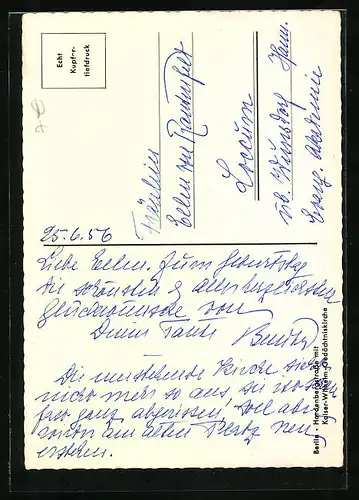 Echt
Kupfer-
tiefdruck
Fräulein
Ellen von
Loccum
üb. Wunstorf Hann.
Evang. Akademie
25.6.56
Liebe Ellen. Zum Geburtstag
die schönsten & allerherzlichsten
Glückwünsche von
Deiner Tante
Die umstehende Kirche sieht
nicht mehr so aus, sie
fast ganz abgerissen, soll aber
wieder am alten Platz neu
erstehen.
Berlin - Hardenbergstraße mit
Kaiser-Wilhelm-Gedächtniskirche